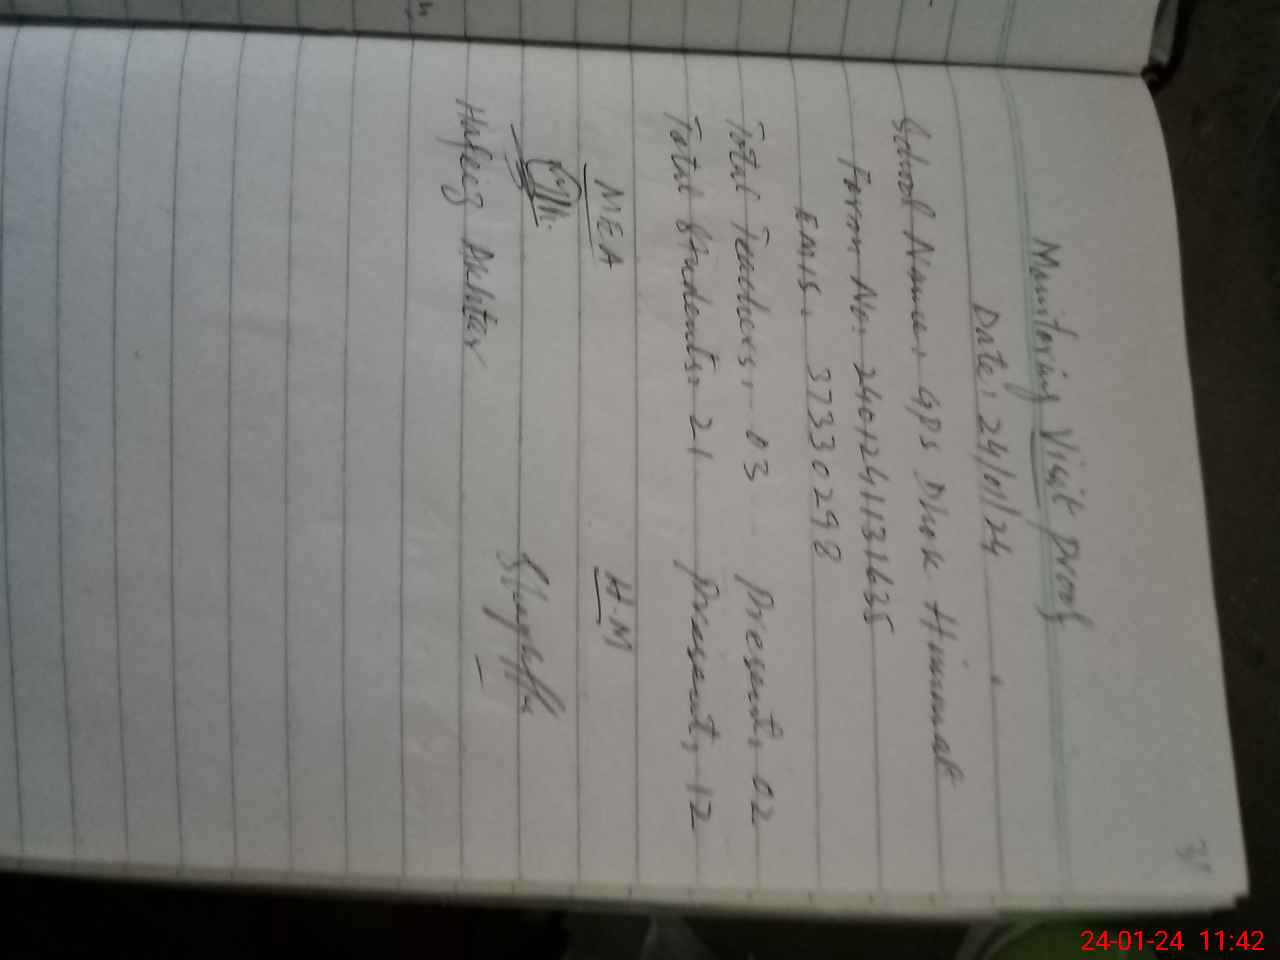 Monitoring Visit Proof
Date: 24/01/24
School Name: GPS Dhok Himmat
Form No: 2401241131635
EMIS: 37330298
Total Teachers: 03 Present: 02
Total Students: 21 Present: 12
MEA H.M
Hafeez Akhtar
24-01-24 11:42